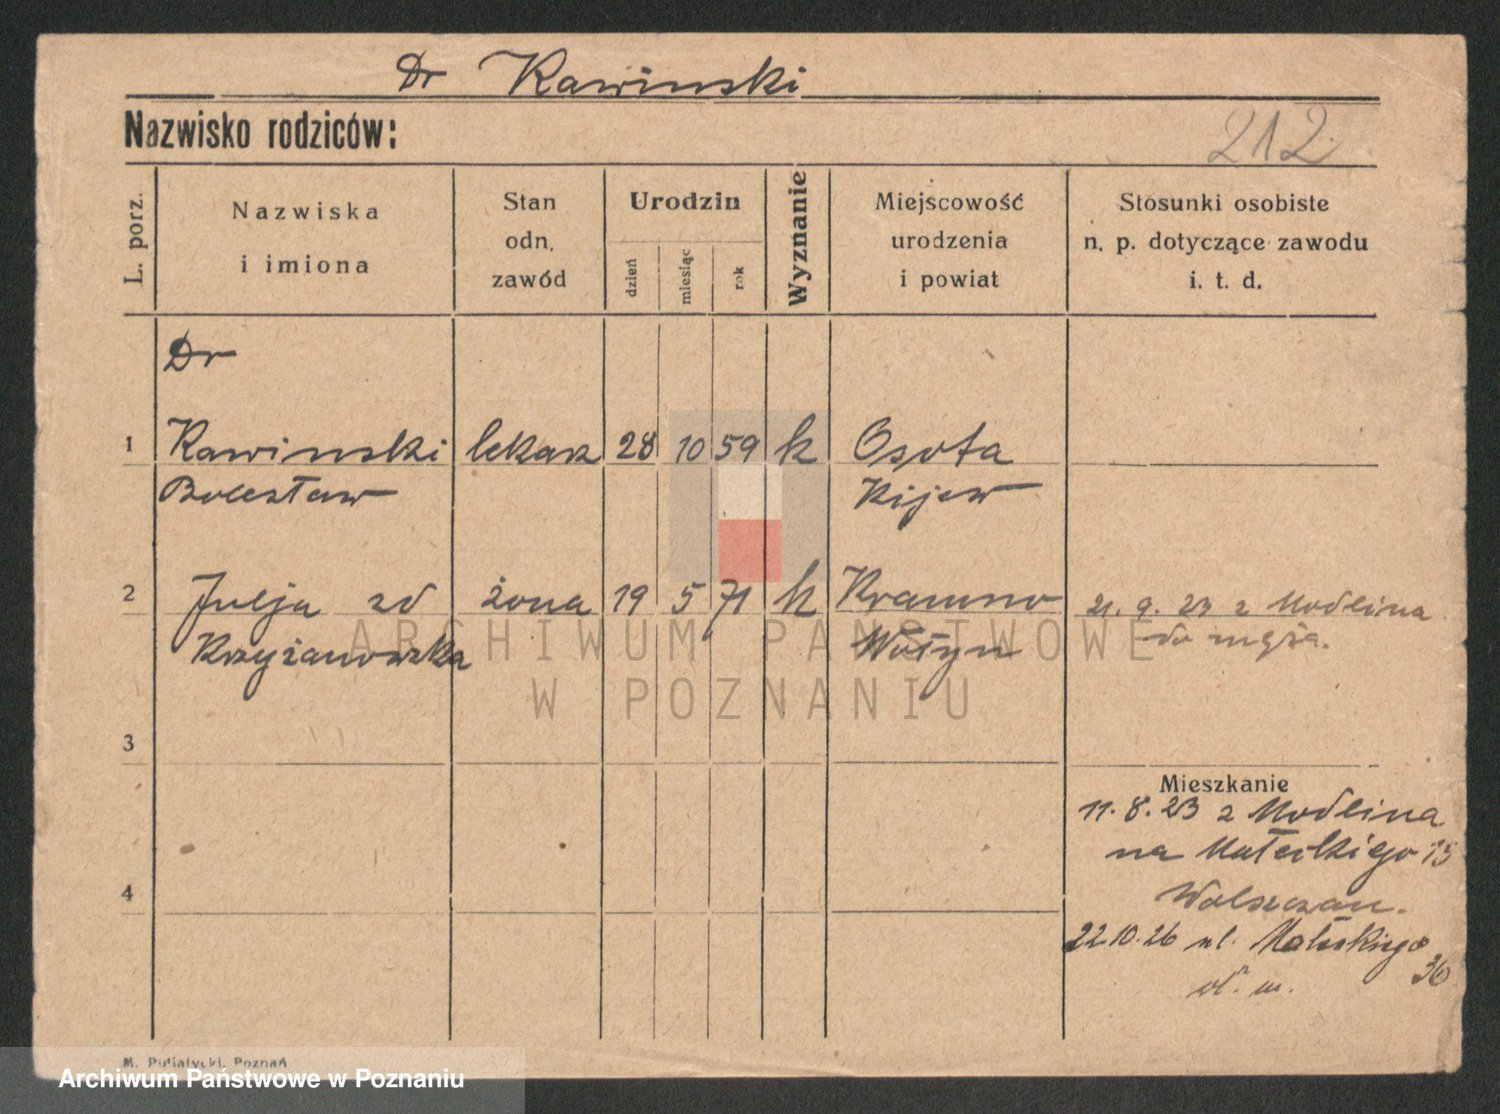 Dr Kawinski
Nazwisko rodziców:
212
L. porz.
Nazwiska
i imiona
Stan
odn.
zawód
Urodzin
dzień
miesiąc
rok
Wyznanie
Miejscowość
urodzenia
i powiat
Stosunki osobiste
n. p. dotyczące zawodu
i. t. d.
Dr
1 Kawinski lekarz 28 10 59 k Osota
Bolesław Kijew
2 Julja zd żona 19 5 71 k Kramno 21. 9. 23 z Modlina
Krzyżanowska Wołyn do męża.
ARCHIWUM PAŃSTWOWE
W POZNANIU
3
Mieszkanie
11. 8. 23 z Modlina
na Małeckiego 15
Wolszczan.
4
22.10.26 ul. Małeckiego
36
wł. m.
M. Putiatycki, Poznań
Archiwum Państwowe w Poznaniu